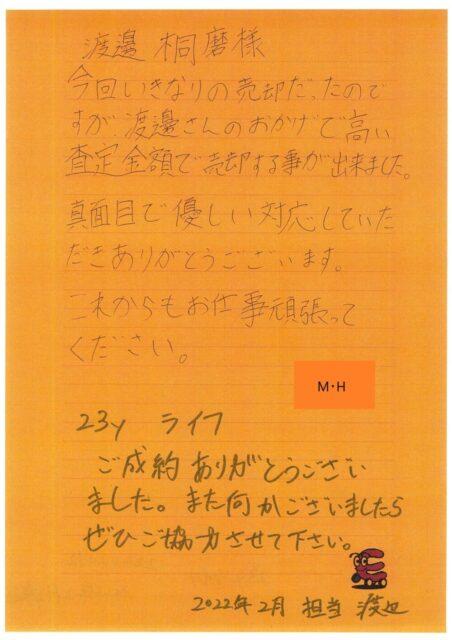 渡邉 桐磨様
今回いきなりの売却だったので
すが渡邉さんのおかげで高い
査定金額で売却する事が出来ました。
真面目で優しい対応していた
だきありがとうございます。
これからもお仕事頑張って
ください。
M・H
23y ライフ
ご成約ありがとうござい
ました。また何かございましたら
ぜひご協力させて下さい。
2022年2月 担当 渡辺